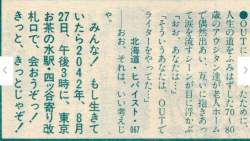 ●OUTに
人生の道をふみはずした70〜81
歳のアウシタン達が老人ホーム
で偶然出あい、互いに抱きあっ
て涙を流すシーンが目に浮かぶ
「おお、あなたは…」
「そういうあなたは、OUTで
ライターをやってた…」
北海道・ヒパイスト・067
おお、それは、いい考えじ
ゃ。
みんな！もし生きて
いたら2042年、8月
27日、午後3時に、東京
お茶の水駅・四ッ谷寄り改
札口で、会おうぞっ！
きっと、きっとじゃぞ！